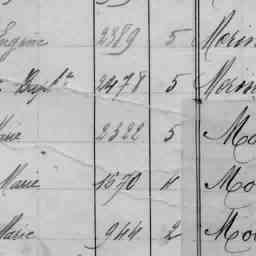 Eugénie 2389 5 Morin
Bap.te 2478 5 Morin
Marie 2322 5 Mo
Marie 1670 4 Mo
Marie 944 2 Mou